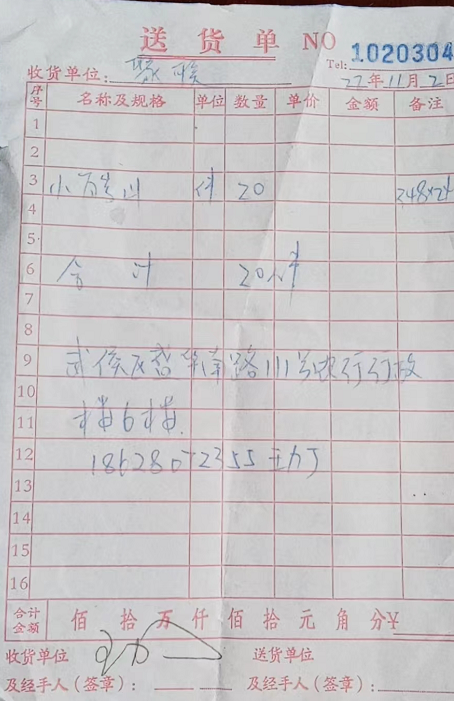 送货单 NO 1020304
收货单位: Tel:
22年11月2日
序号 名称及规格 单位 数量 单价 金额 备注
1
2
3 小 件 20 248×24
4
5
6 合计 20件
7
8
9 武侯区 南路111号银行行政
10
11 楼6楼.
12 18628072355 王
13
14
15
16
合计金额 佰拾万仟佰拾元角分¥
收货单位 送货单位
及经手人(签章): 及经手人(签章):